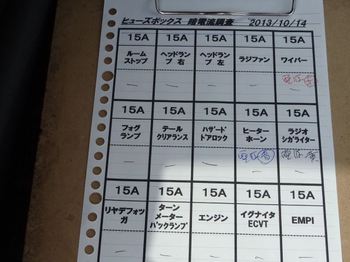 ヒューズボックス 暗電流調査 2013/10/14
15A 15A 15A 15A 15A
ルーム ヘッドランプ ヘッドランプ ラジファン ワイパー
ストップ 右 左
15A 15A 15A 15A 15A
フォグ テール ハザード ヒーター ラジオ
ランプ クリアランス ドアロック ホーン シガライター
15A 15A 15A 15A 15A
リヤデフォッガ ターン エンジン イグナイタ EMPI
メーター ECVT
バックランプ